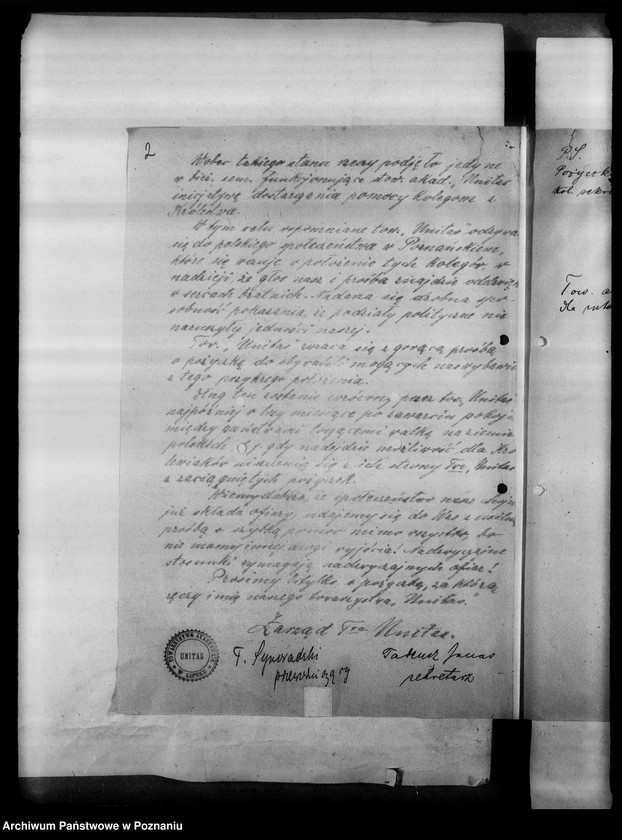 2
Wobec takiego stanu rzeczy podjęło jedyne
w bież. sem. funkcjonujące tow. akad. „Unitas"
inicjatywę dostarczania pomocy kolegom z
Królestwa.
W tym celu wspomniane tow. „Unitas" odzywa
się do polskiego społeczeństwa w Poznańskiem,
które się raduje o położenie tych kolegów, w
nadziei, że głos nasz i prośba znajdzie oddźwięk
w sercach bratnich. Nadarza się drobna spo-
sobność pokazania, że podziały polityczne nie
naruszyły jedności naszej.
Tow. „Unitas" zwraca się z gorącą prośbą
o pożyczkę do obywateli mogących nas wybawić
z tego przykrego położenia.
Dług ten zostanie zwrócony przez tow. „Unitas"
najpóźniej o trzy miesiące po zawarciu pokoju
między państwami toczącemi walkę na ziemiach
polskich t. j. gdy nadejdzie możliwość dla Kró-
lewiaków uiszczenia się z ich strony Tow. „Unitas"
z zaciągniętych pożyczek.
Wiemy dobrze, że społeczeństwo nasze
już składa ofiary, udajemy się do Was z usilną
prośbą o szybką pomoc mimo wszystko, bo
nie mamy innej drogi wyjścia. Nadzwyczajne
stosunki wymagają nadzwyczajnych ofiar!
Prosimy tylko o pożyczkę, za którą
ręczy imię naszego towarzystwa „Unitas."
Zarząd Twa Unitas.
TOWARZYSTWO AKADEMICKIE
UNITAS
W LIPSKU
T.
przewodniczący
Tadeusz Janas
sekretarz
P.S.
Pożyczk
kol. sekre
Tow. a
Archiwum Państwowe w Poznaniu